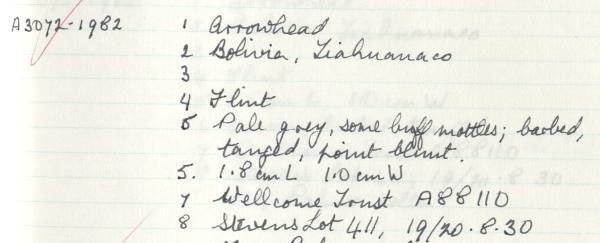 A3072-1982 1 Arrowhead
2 Bolivia, Tiahuanaco
3
4 Flint
5 Pale grey, some buff mottles; barbed,
tanged, point blunt.
5. 1.8 cm L 1.0 cm W
7 Wellcome Trust A88110
8 Stevens Lot 411, 19/20.8.30